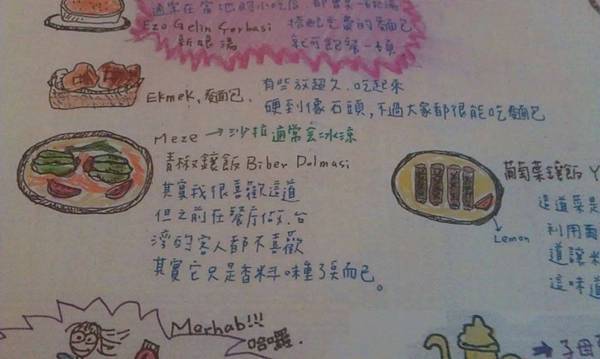 通常在當地的小吃店 都會來一碗湯
Ezo Gelin Çorbasi 搭配免費的麵包
新娘湯 就可飽餐一頓
EKMEK, 麵包. 有些放超久. 吃起來
硬到像石頭, 不過大家都很能吃麵包
Meze → 沙拉 通常會冰涼
青椒鑲飯 Biber Dolmasi
其實我很喜歡這道
但之前在餐廳做. 台
灣的客人都不喜歡
其實它只是香料味重了點而已。
葡萄葉鑲飯 Y
這道菜是
利用葡
道讓米
這味道
Lemon
Marhab!!!
哈囉.
→ 了母